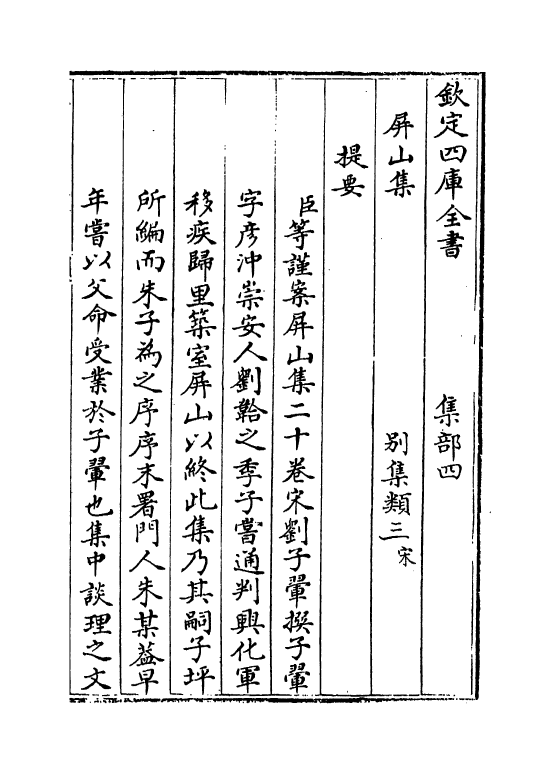 欽定四庫全書　　　　集部四
屏山集　　　　　別集類三宋
提要
臣等謹案屏山集二十卷宋劉子翬撰子翬
字彥沖崇安人劉韐之季子嘗通判興化軍
移疾歸里築室屏山以終此集乃其嗣子坪
所編而朱子為之序序末署門人朱某葢早
年嘗以父命受業於子翬也集中談理之文